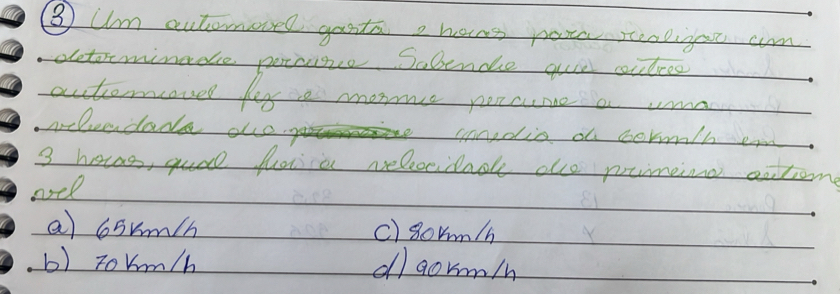 3 Um automovel gasta 2 horas para realizar um
determinado percurso. Sabendo que outro
automovel fez o mesmo percurso a uma
velocidade do media de 60km/h em
3 horas, qual foi a velocidade do primeiro automo
vel
a) 65km/h c) 80km/h
b) 70km/h d) 90km/h